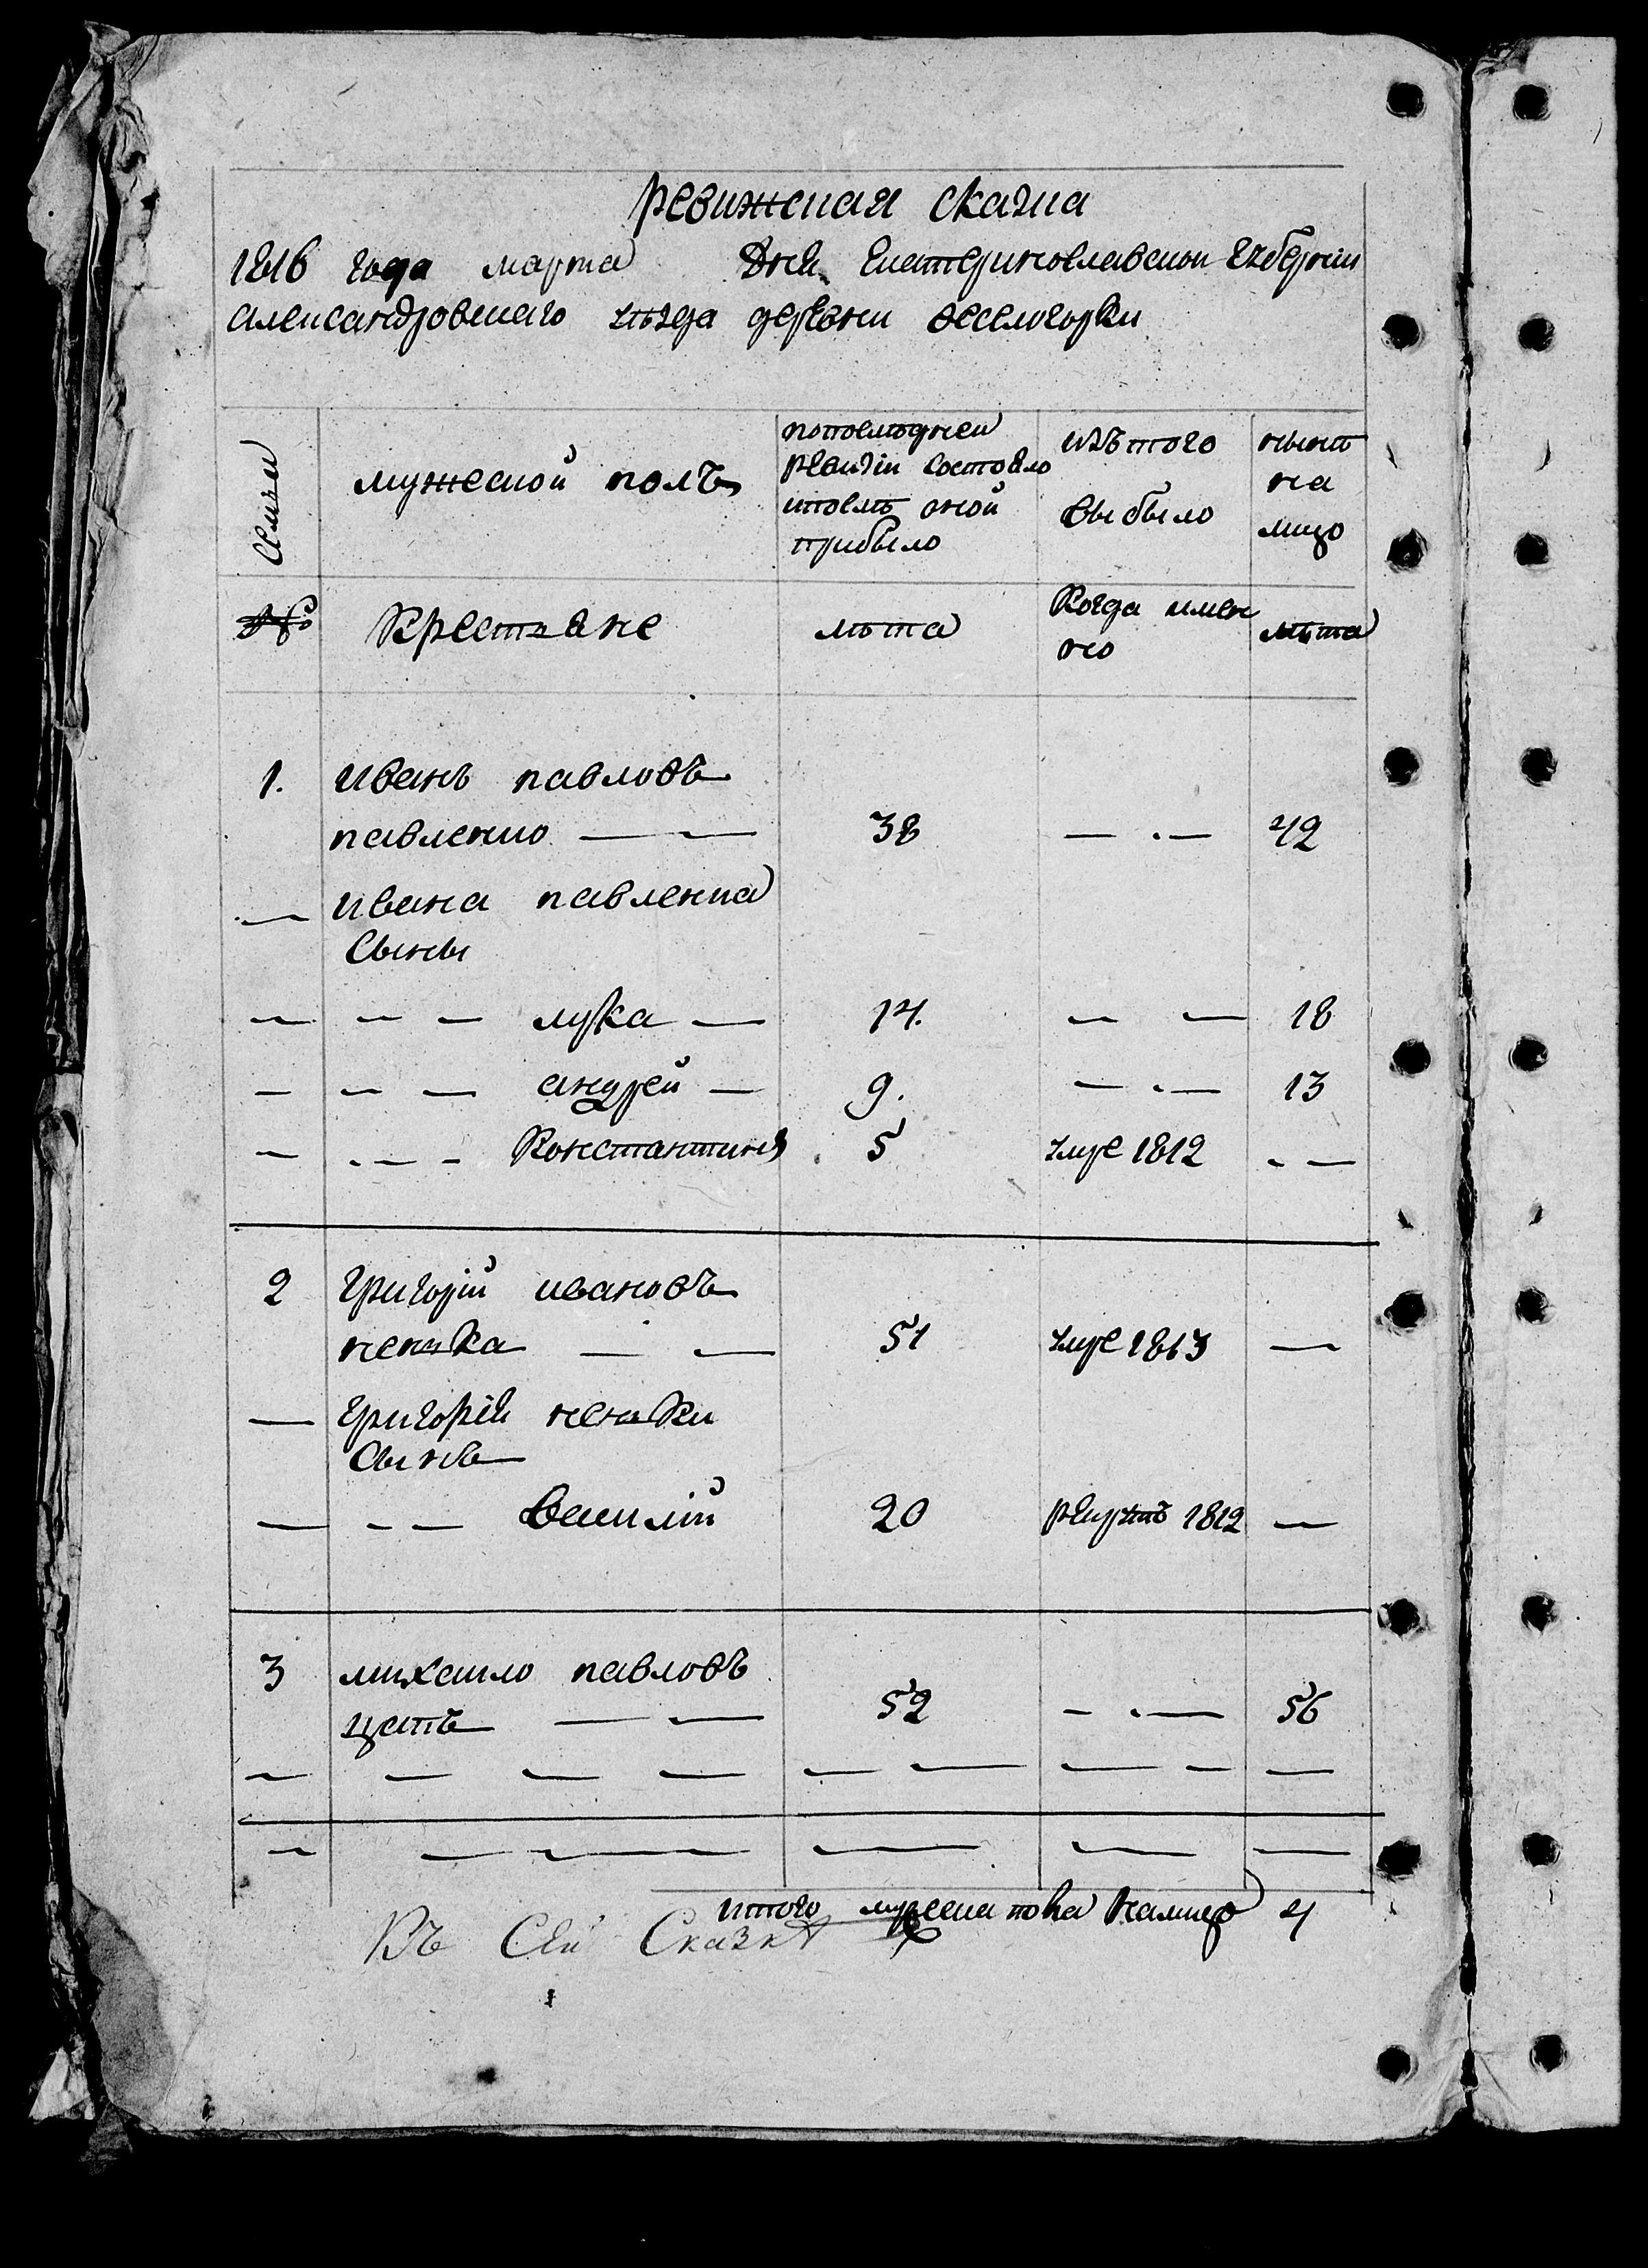 ревижская сказка
1816 года марта Дня Екатеринославской губернии
александровскаго уезда деревни веселогорки
Семьи
мужеской полъ
попоследней
ревизіи состояло
ипослѣ оной
прибыло
изъ того
выбыло
нынѣ
на
лицо
№
Крестьяне
лѣта
Когда имен
но
лѣта
1. иванъ павловъ
павленко — — 38 — . — 42
— ивана павленка
Сыны
— — — лука — 14. — — 18
— — — андрей — 9. — . — 13
— — — Константинъ 5 умре 1812 — —
2 григорій ивановъ
ненька — — 51 умре 1813 —
— григорія неньки
Сынъ
— — — Василій 20 рекрутъ 1812 —
3 михаило павловъ
— — 52 — . — 56
— — — — — — — — —
— — — — — —
итого мужеска пола налицо 4
Въ Сей Сказкѣ